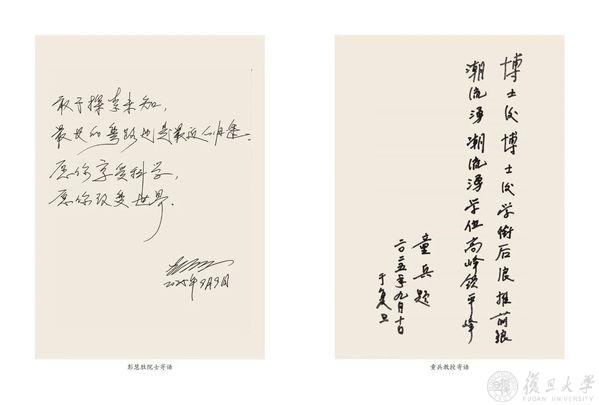 敢于探索未知，
最长的弯路也是最近的归途.
愿你享受科学，
愿你改变世界.
2025年9月9日
彭慧胜院士寄语
博士后博士后学术后浪推前浪
潮流涌潮流涌学位高峰平峰
童兵题
二〇二五年九月十日
于复旦
童兵教授寄语
復旦大學
FUDAN UNIVERSITY